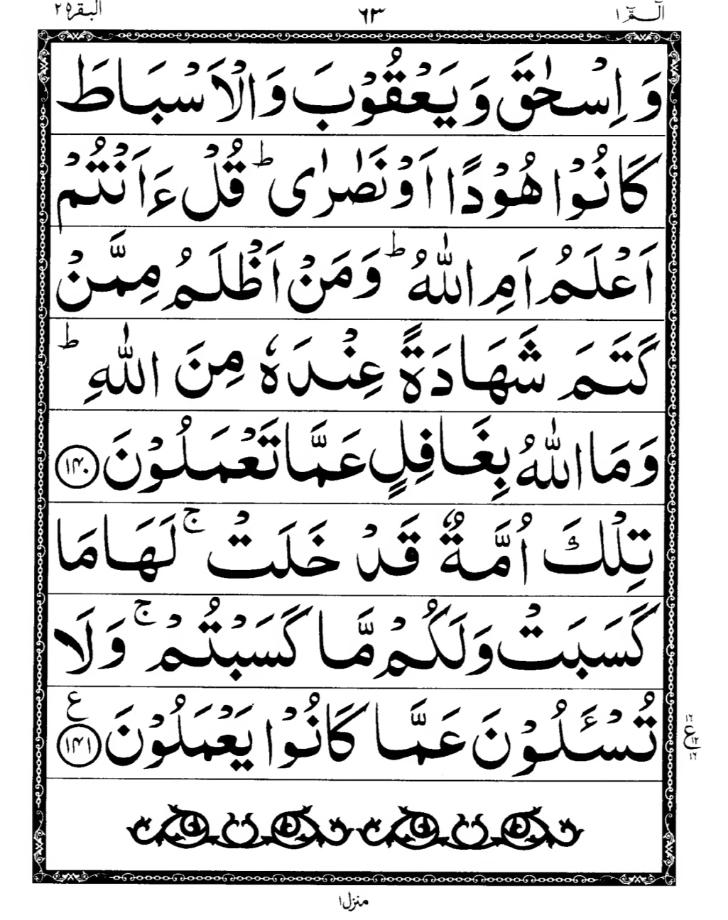 الٓـمّٓ ۱ ٦٣ البقرة ۲
وَ اِسْحٰقَ وَ يَعْقُوْبَ وَالْاَسْبَاطَ
كَانُوْا هُوْدًا اَوْ نَصٰرٰى ؕ قُلْ ءَاَنْتُمْ
اَعْلَمُ اَمِ اللّٰهُ ؕ وَمَنْ اَظْلَمُ مِمَّنْ
كَتَمَ شَهَادَةً عِنْدَهٗ مِنَ اللّٰهِ ؕ
وَمَا اللّٰهُ بِغَافِلٍ عَمَّا تَعْمَلُوْنَ ﴿۱۴۰﴾
تِلْكَ اُمَّةٌ قَدْ خَلَتْ ۚ لَهَا مَا
كَسَبَتْ وَلَكُمْ مَّا كَسَبْتُمْ ۚ وَلَا
تُسْـَٔلُوْنَ عَمَّا كَانُوْا يَعْمَلُوْنَ ﴿۱۴۱﴾ ع
ع
منزل۱